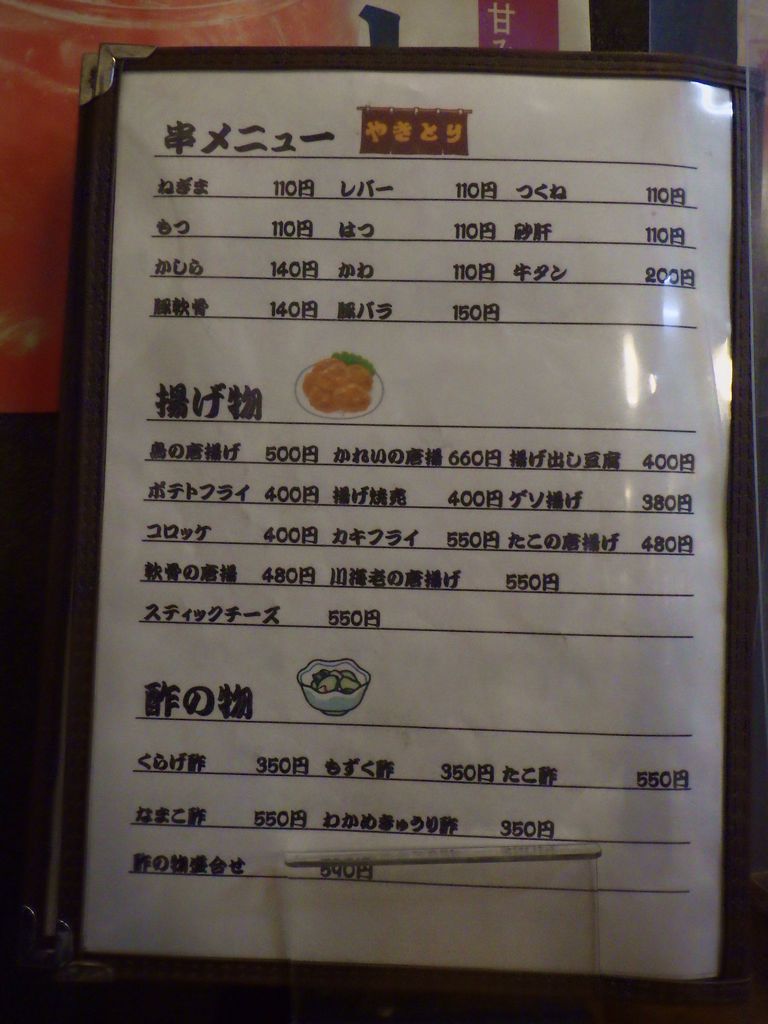 甘み
串メニュー やきとり
ねぎま 110円 レバー 110円 つくね 110円
もつ 110円 はつ 110円 砂肝 110円
かしら 140円 かわ 110円 牛タン 200円
豚軟骨 140円 豚バラ 150円
揚げ物
鳥の唐揚げ 500円 かれいの唐揚 660円 揚げ出し豆腐 400円
ポテトフライ 400円 揚げ焼売 400円 ゲソ揚げ 380円
コロッケ 400円 カキフライ 550円 たこの唐揚げ 480円
軟骨の唐揚 480円 川海老の唐揚げ 550円
スティックチーズ 550円
酢の物
くらげ酢 350円 もずく酢 350円 たこ酢 550円
なまこ酢 550円 わかめきゅうり酢 350円
酢の物盛合せ 590円